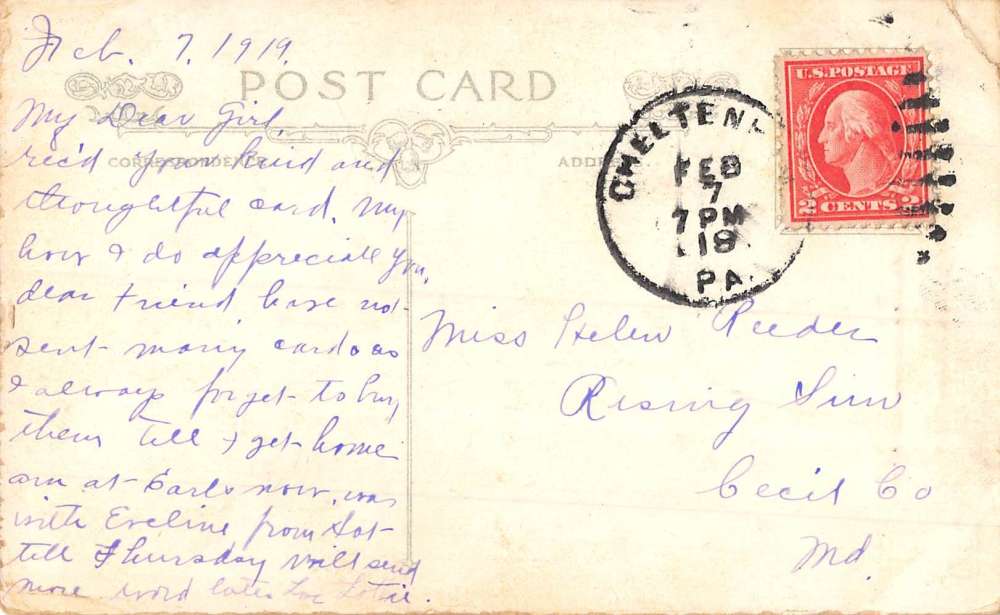 Feb. 7. 1919.
POST CARD
CORRESPONDENCE
ADDRESS
My Dear Girl,
rec'd your kind and
thoughtful card. My
how I do appreciate you,
dear friend have not
sent many cards as
I always forget to buy
them till I get home
am at Earls now, was
with Eveline from Sat
till Thursday will send
more word later Love Lottie.
CHELTENH
FEB
7
7 PM
19
PA.
U.S. POSTAGE
2 CENTS 2
Miss Helen Reeder
Rising Sun
Cecil Co
Md.